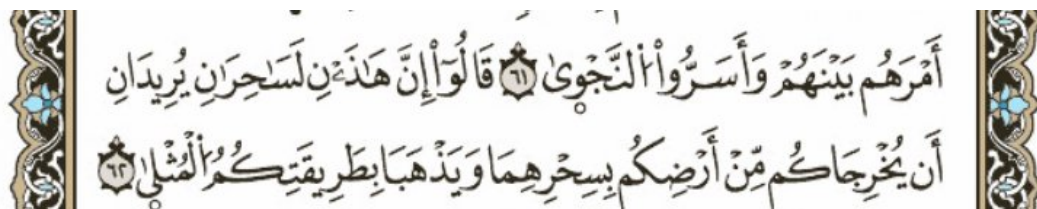 أَمْرَهُم بَيْنَهُمْ وَأَسَرُّواْ اُلنَّجْوۭىٰ ٦١ قَالُوٓاْ إِنَّ هَٰذَيْنِ لَسَٰحِرَٰنِ يُرِيدَانِ
أَن يُخْرِجَاكُم مِّنْ أَرْضِكُم بِسِحْرِهِمَا وَيَذْهَبَا بِطَرِيقَتِكُمُ اُلْمُثْلىٰ ٦٢